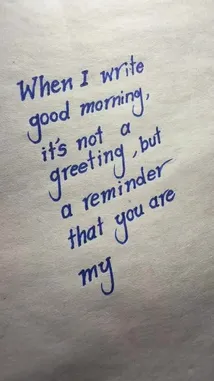 When I write
good morning,
it's not a
greeting, but
a reminder
that you are
my